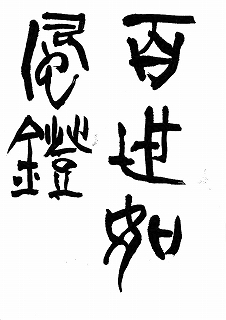 百世如
風鐙